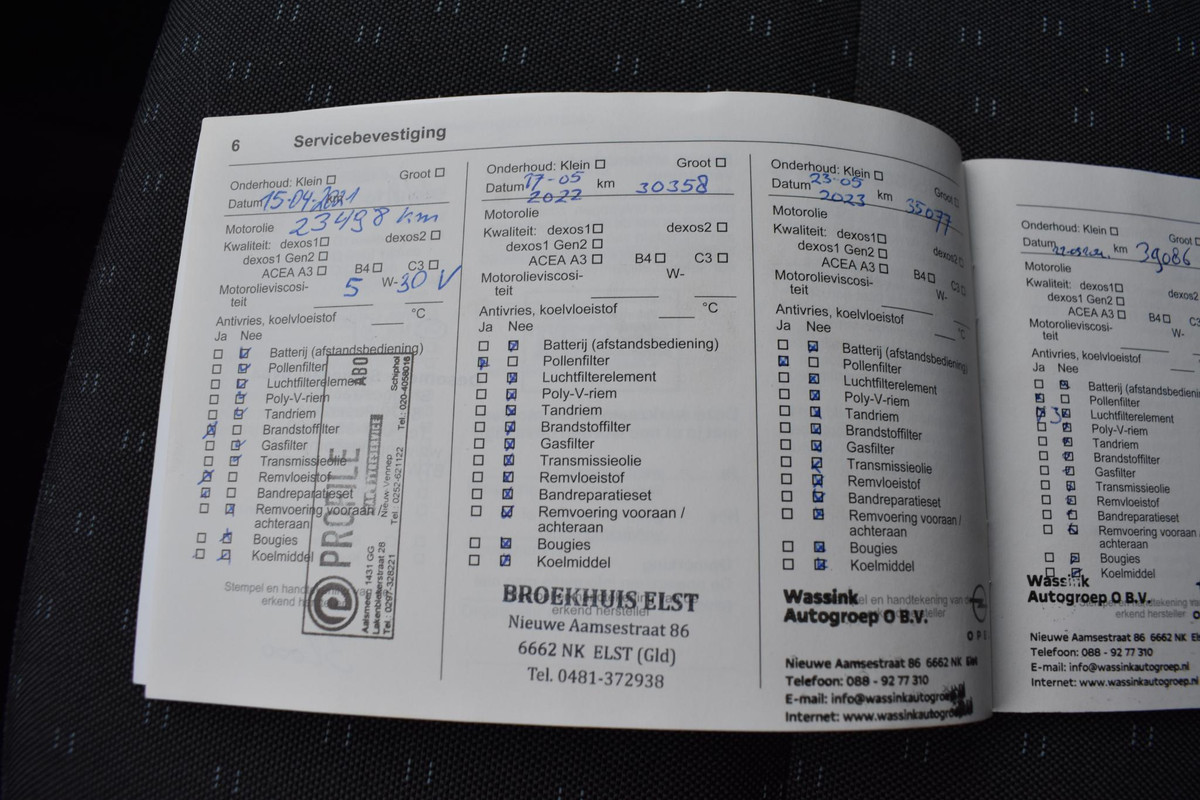 6 Servicebevestiging
Onderhoud: Klein Groot
Datum 15-04-2021 km
Motorolie 23498 km
Kwaliteit: dexos1 dexos2
dexos1 Gen2
ACEA A3 B4 C3
Motorolieviscosi-
teit 5 W-30 V
Antivries, koelvloeistof °C
Ja Nee
Batterij (afstandsbediening)
Pollenfilter
Luchtfilterelement
Poly-V-riem
Tandriem
Brandstoffilter
Gasfilter
Transmissieolie
Remvloeistof
Bandreparatieset
Remvoering vooraan /
achteraan
Bougies
Koelmiddel
Stempel en handtekening van
erkend hersteller
PROFILE
ABO
Aalsmeer, 1431 GG
Tel.: 0297-328221
Nieuw Vennep
Tel.: 0252-621122
Schiphol
Tel.: 020-4059018
Onderhoud: Klein Groot
Datum 17-05 km 30358
2022
Motorolie
Kwaliteit: dexos1 dexos2
dexos1 Gen2
ACEA A3 B4 C3
Motorolieviscosi- W-
teit
Antivries, koelvloeistof °C
Ja Nee
Batterij (afstandsbediening)
Pollenfilter
Luchtfilterelement
Poly-V-riem
Tandriem
Brandstoffilter
Gasfilter
Transmissieolie
Remvloeistof
Bandreparatieset
Remvoering vooraan /
achteraan
Bougies
Koelmiddel
BROEKHUIS ELST
erkend hersteller
Nieuwe Aamsestraat 86
6662 NK ELST (Gld)
Tel. 0481-372938
Onderhoud: Klein Groot
Datum 23-05 km 35077
2023
Motorolie
Kwaliteit: dexos1 dexos2
dexos1 Gen2
ACEA A3 B4 C3
Motorolieviscosi- W-
teit
Antivries, koelvloeistof °C
Ja Nee
Batterij (afstandsbediening)
Pollenfilter
Luchtfilterelement
Poly-V-riem
Tandriem
Brandstoffilter
Gasfilter
Transmissieolie
Remvloeistof
Bandreparatieset
Remvoering vooraan /
achteraan
Bougies
Koelmiddel
Wassink
Autogroep O B.V.
en handtekening van
OPEL
Nieuwe Aamsestraat 86 6662 NK Elst
Telefoon: 088 - 92 77 310
E-mail: info@wassinkautogroep
Internet: www.wassinkautogroep
Onderhoud: Klein Groot
Datum km 39086
Motorolie
Kwaliteit: dexos1 dexos2
dexos1 Gen2
ACEA A3 B4 C3
Motorolieviscosi-
teit
Antivries, koelvloeistof
Ja Nee
Batterij (afstandsbedienin
Pollenfilter
Luchtfilterelement
Poly-V-riem
Tandriem
Brandstoffilter
Gasfilter
Transmissieolie
Remvloeistof
Bandreparatieset
Remvoering vooraan
achteraan
Bougies
Koelmiddel
Wassink
Autogroep O B.V.
erkend hersteller
Nieuwe Aamsestraat 86 6662 NK
Telefoon: 088 - 92 77 310
E-mail: info@wassinkautogroep.nl
Internet: www.wassinkautogroep.nl